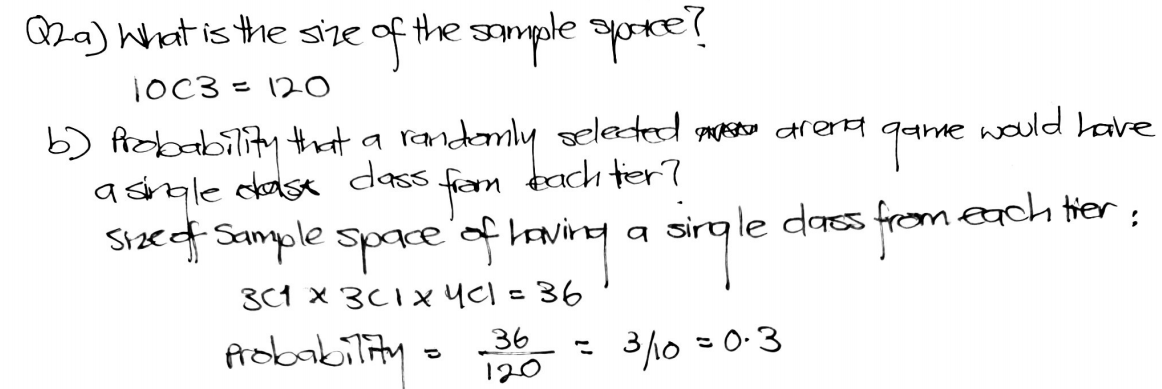 Q2a) What is the size of the sample space?
10C3 = 120
b) Probability that a randomly selected arena game would have
a single class from each tier?
Size of Sample space of having a single class from each tier :
3C1 x 3C1 x 4C1 = 36
Probability = 36/120 = 3/10 = 0.3